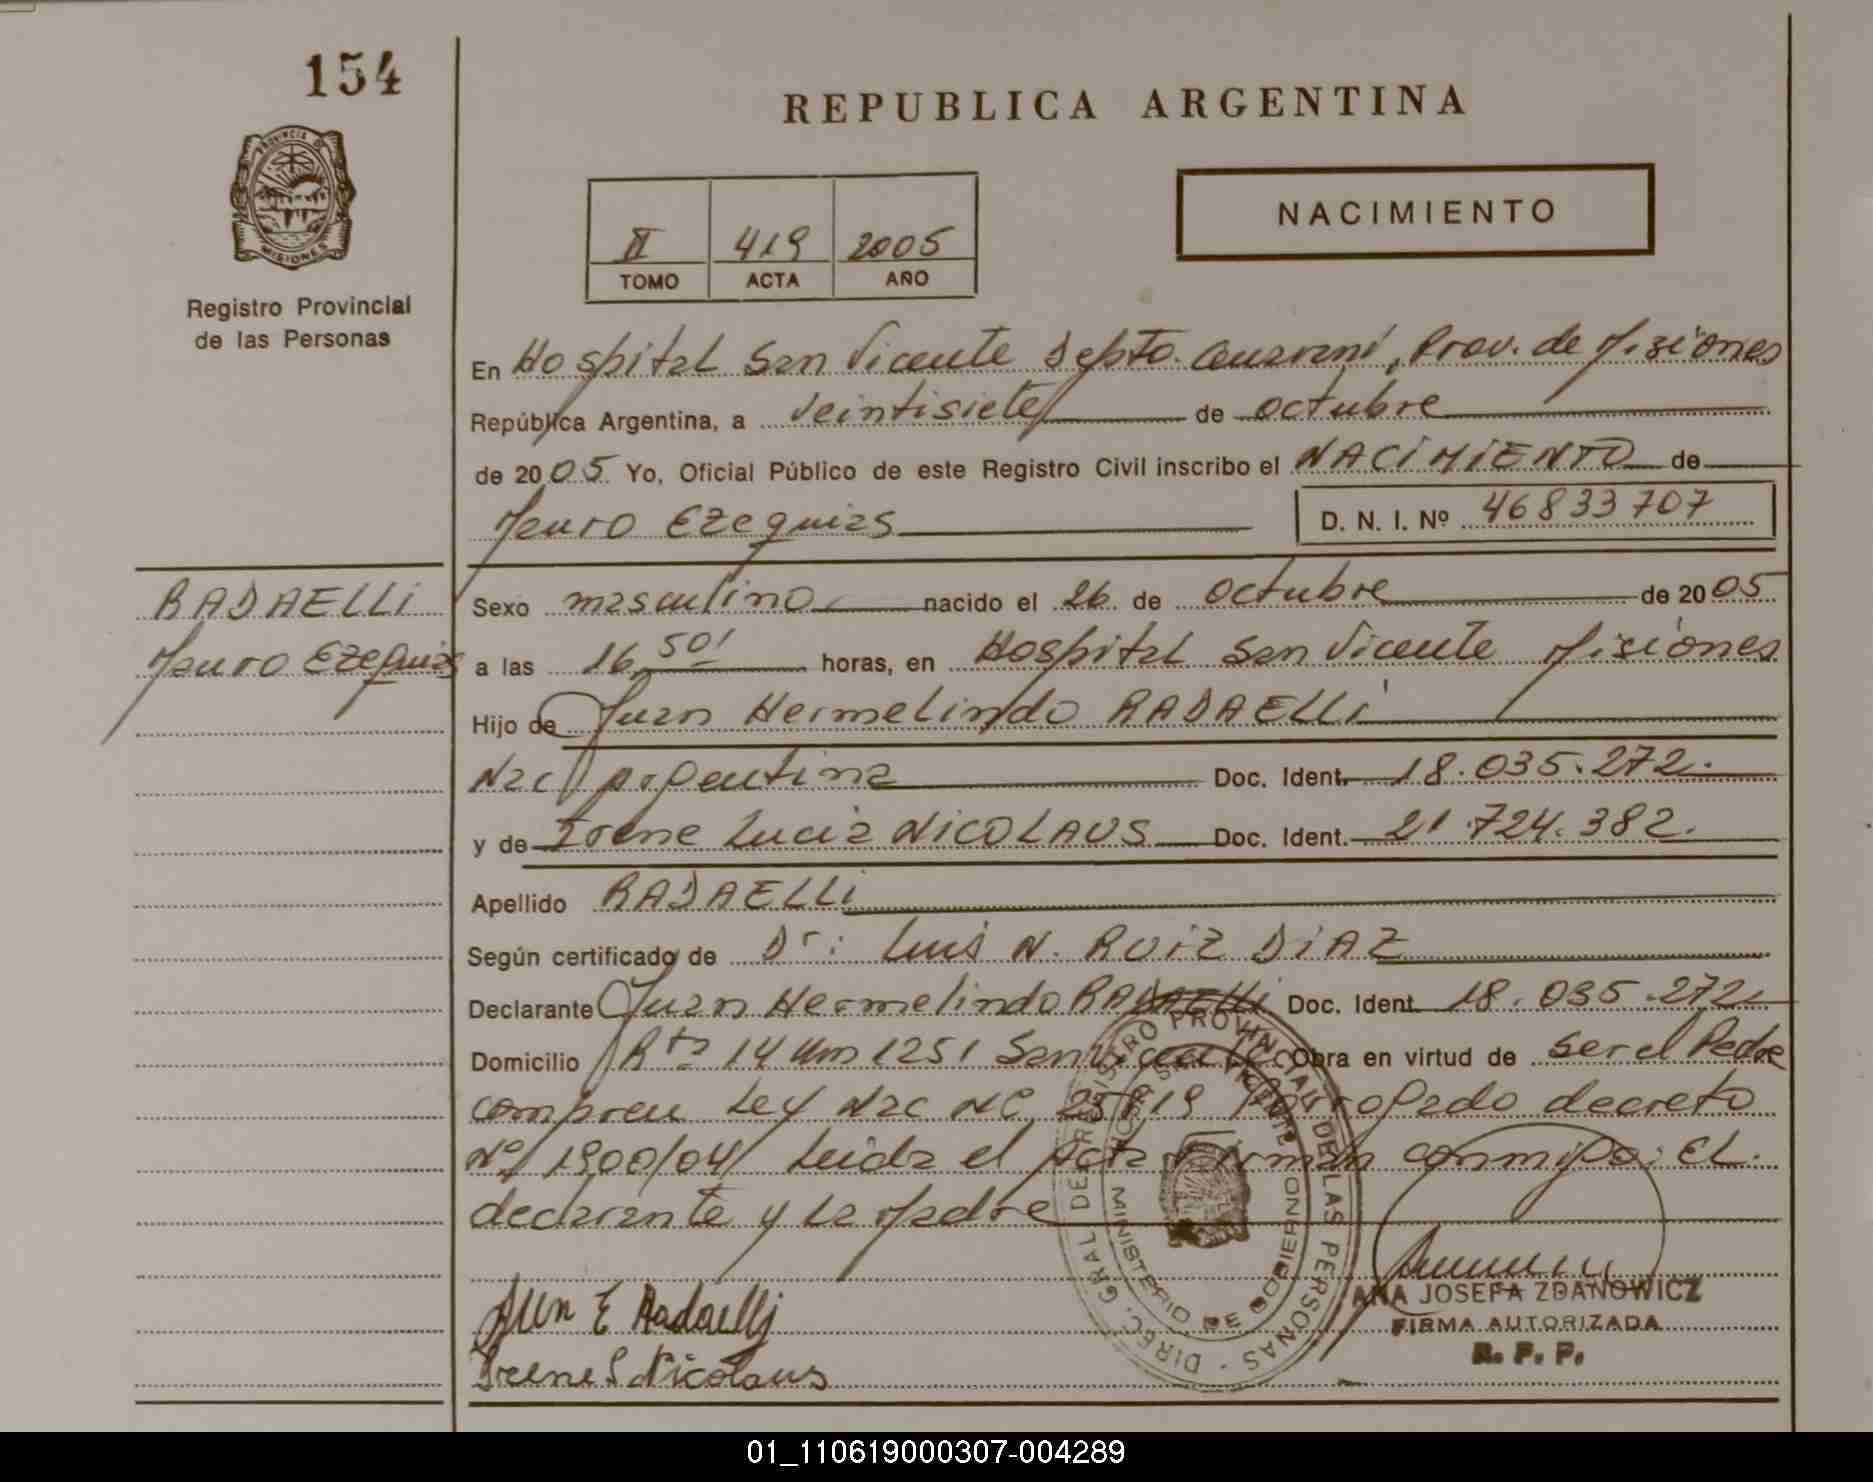 154
REPUBLICA ARGENTINA
PROVINCIA DE
MISIONES
Registro Provincial
de las Personas
II 419 2005
TOMO ACTA AÑO
NACIMIENTO
En Hospital San Vicente Depto. Guaraní, Prov. de Misiones
República Argentina, a veintisiete de octubre
de 2005 Yo, Oficial Público de este Registro Civil inscribo el NACIMIENTO de
Mauro Ezequias D. N. I. Nº 46833707
RADAELLI
Mauro Ezequias
Sexo masculino nacido el 26 de octubre de 2005
a las 16,50' horas, en Hospital San Vicente Misiones
Hijo de Juan Hermelindo RADAELLI
Nac/ Argentina Doc. Ident. 18.035.272.
y de Irene Lucia NICOLAUS Doc. Ident. 21.724.382.
Apellido RADAELLI
Según certificado de Dr: Luis N. RUIZ DIAZ
Declarante Juan Hermelindo RADAELLI Doc. Ident. 18.035.272
Domicilio Rta 14 Km 1251 San Vicente Obra en virtud de ser el Padre
Ley Nac Nº decreto
Nº 1900/04/ Leida el Acta firman conmigo: EL
declarante y La Madre
DIREC. GRAL DE REGISTRO PROVINCIAL DE LAS PERSONAS
MINISTERIO DE GOBIERNO
Juan E Radaelli
Irene L Nicolaus
ANA JOSEFA ZDANOWICZ
FIRMA AUTORIZADA
R. P. P.
01_110619000307-004289